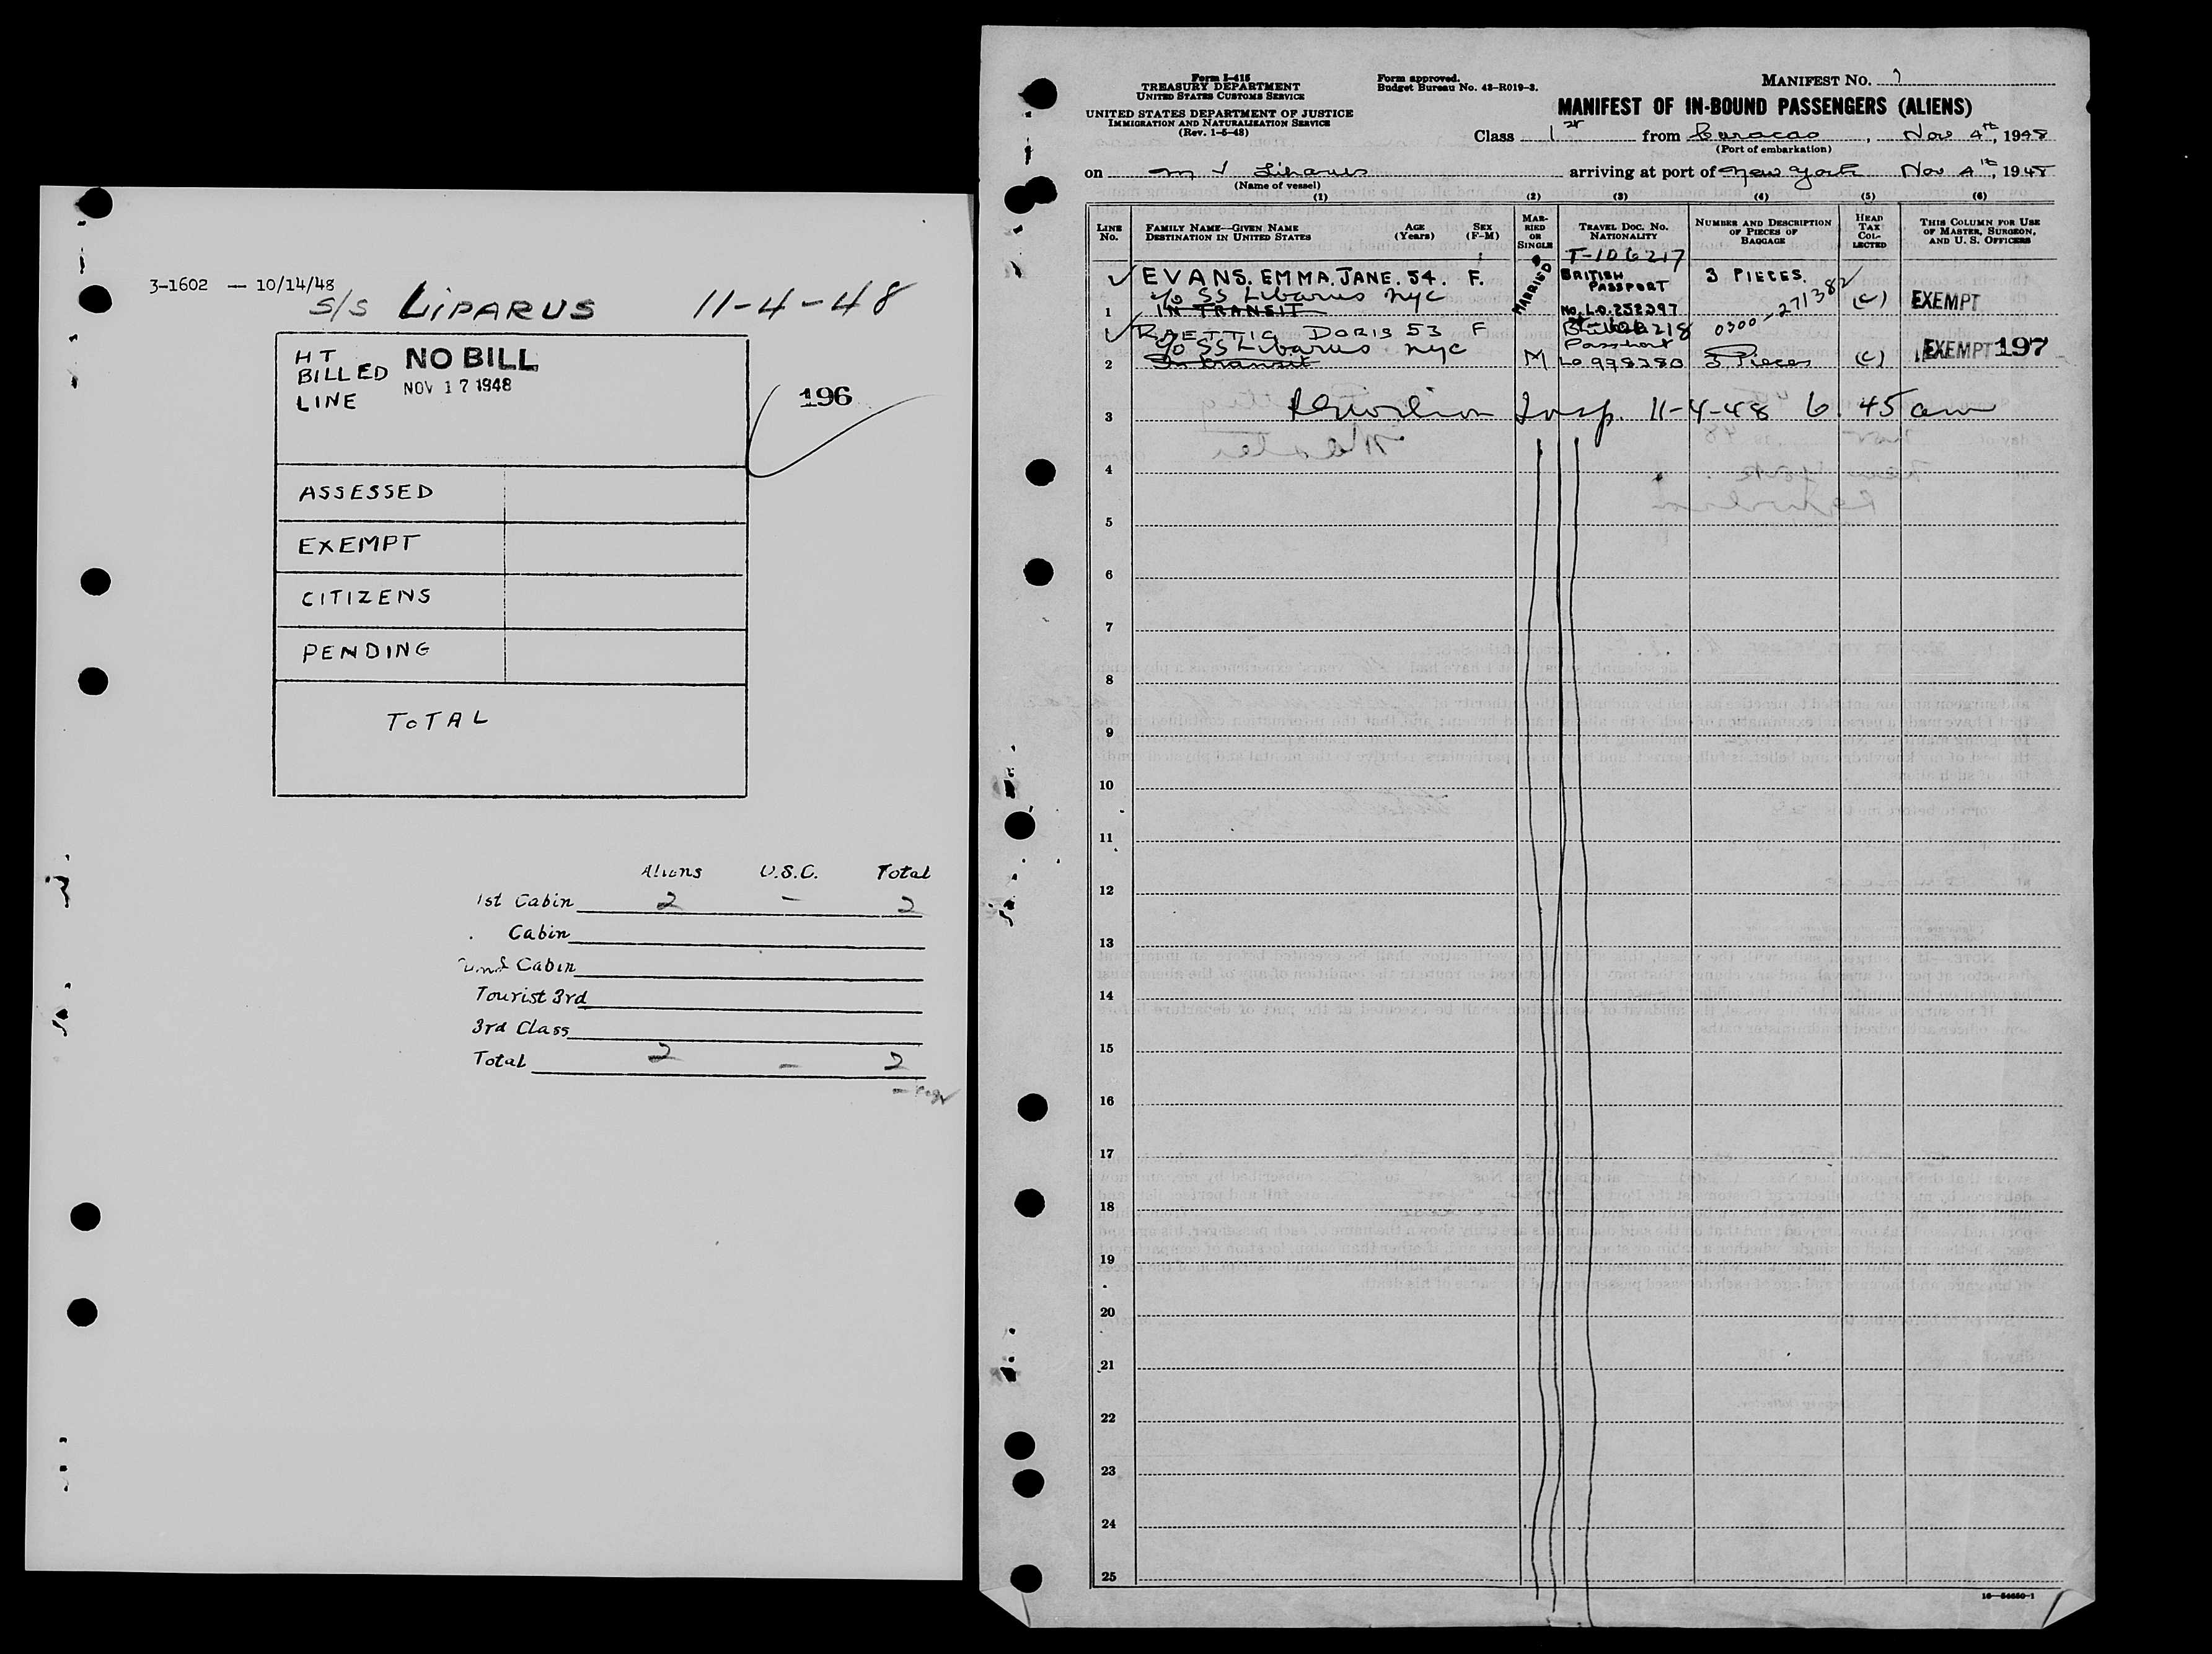 3-1602 — 10/14/48
S/S LIPARUS 11-4-48
HT
BILLED
LINE
NO BILL
NOV 17 1948
196
ASSESSED
EXEMPT
CITIZENS
PENDING
TOTAL
Aliens U.S.C. Total
1st Cabin 2 - 2
Cabin
Cabin
Tourist 3rd
3rd Class
Total 2 - 2
Form I-415
TREASURY DEPARTMENT
UNITED STATES CUSTOMS SERVICE
UNITED STATES DEPARTMENT OF JUSTICE
IMMIGRATION AND NATURALIZATION SERVICE
(Rev. 1-5-48)
Form approved.
Budget Bureau No. 43-R019-3.
MANIFEST No. 1
MANIFEST OF IN-BOUND PASSENGERS (ALIENS)
Class 1st from Curacao, Nov 4th, 1948
(Port of embarkation)
on m v Liparus arriving at port of New York Nov 4th, 1948
(Name of vessel)
(1) (2) (3) (4) (5) (6)
LINE No.
FAMILY NAME—GIVEN NAME
DESTINATION IN UNITED STATES
AGE (Years)
SEX (F-M)
MARRIED OR SINGLE
TRAVEL DOC. NO. NATIONALITY
NUMBER AND DESCRIPTION OF PIECES OF BAGGAGE
HEAD TAX COLLECTED
THIS COLUMN FOR USE OF MASTER, SURGEON, AND U. S. OFFICERS
T-106217
EVANS. EMMA. JANE. 54. F. MARRIED BRITISH PASSPORT 3 PIECES.
c/o SS Libarus nyc
1 IN TRANSIT No. L.O. 252397 0300-271382 (c) EXEMPT
RAETTIG DORIS 53 F
c/o SS Libarus nyc Passport
2 In transit M Lo 998280 3 Pieces (c) EXEMPT 197
3 Insp. 11-4-48 6.45 am
4
5
6
7
8
9
10
11
12
13
14
15
16
17
18
19
20
21
22
23
24
25
16—54650-1